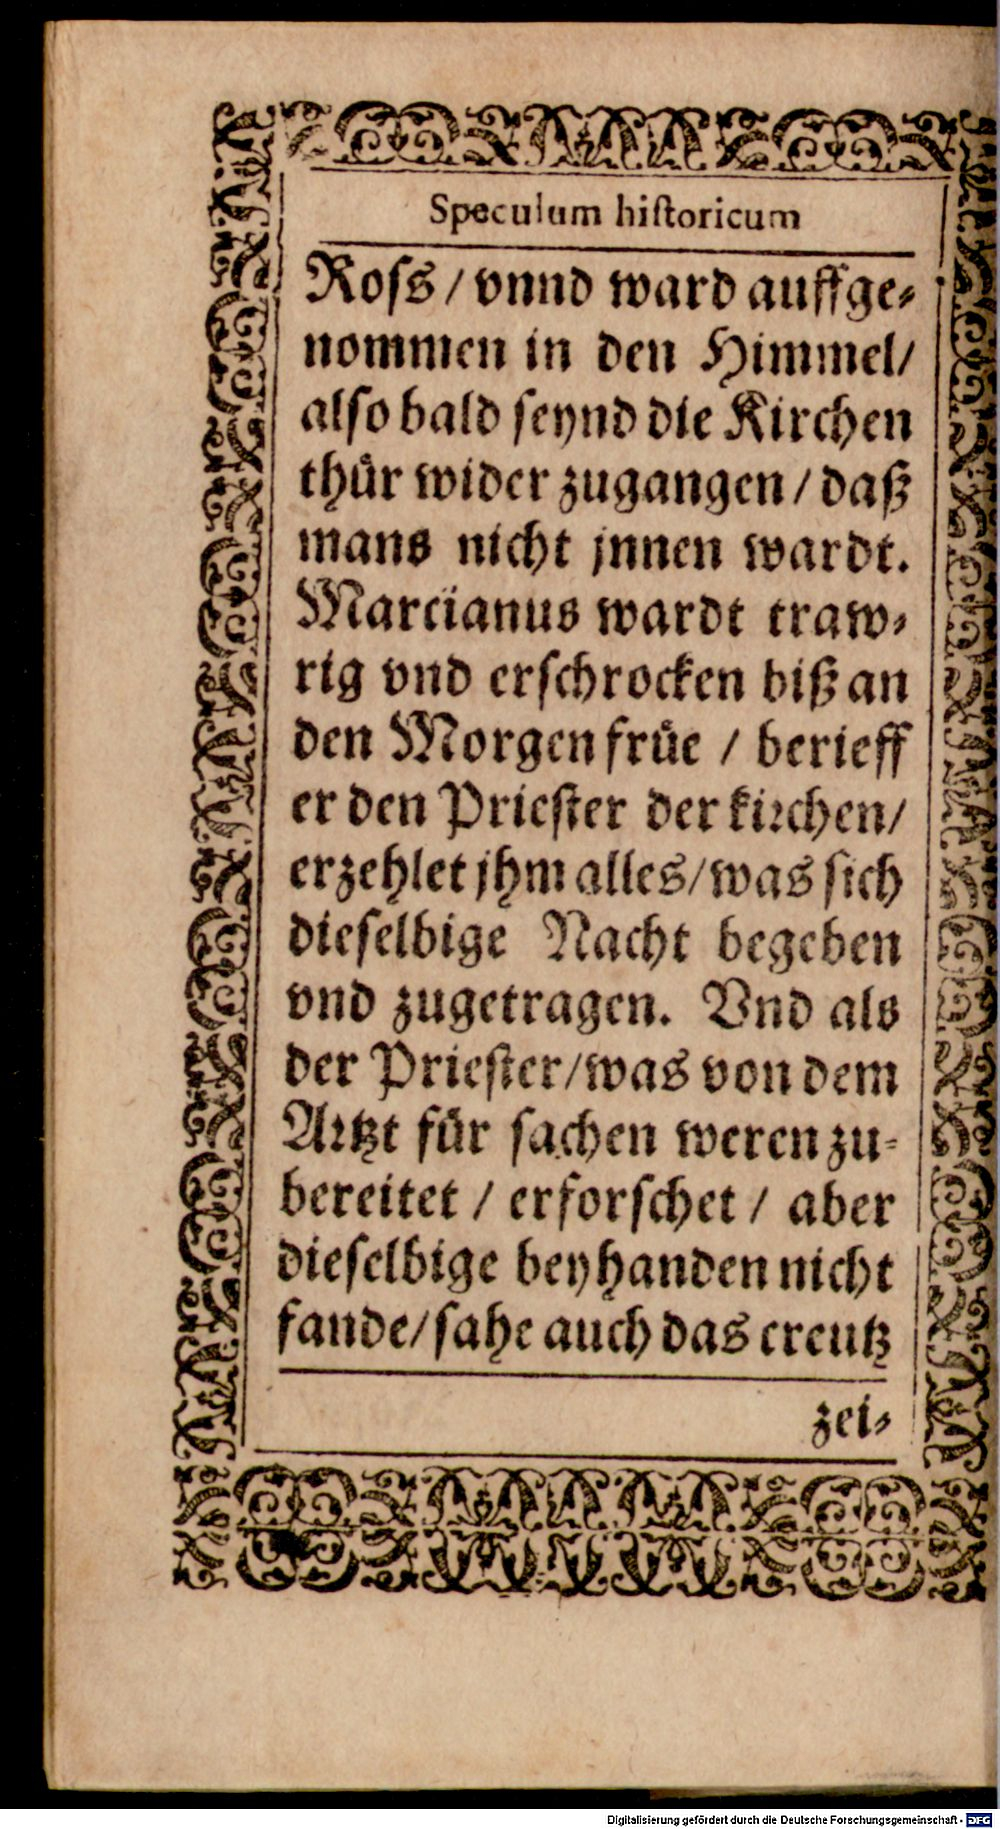 Speculum hiſtoricum
Roſs / vnnd ward auffge⸗
nommen in den Himmel/
alſo bald ſeynd die Kirchen
thür wider zugangen / daß
mans nicht jnnen wardt.
Marcianus wardt traw⸗
rig vnd erſchrocken biß an
den Morgen früe / berieff
er den Prieſter der kirchen/
erzehlet jhm alles/was ſich
dieſelbige Nacht begeben
vnd zugetragen. Vnd als
der Prieſter/was von dem
Artzt für ſachen weren zu⸗
bereitet / erforſchet / aber
dieſelbige beyhanden nicht
fande/ſahe auch das creutz
zei⸗
Digitalisierung gefördert durch die Deutsche Forschungsgemeinschaft - DFG